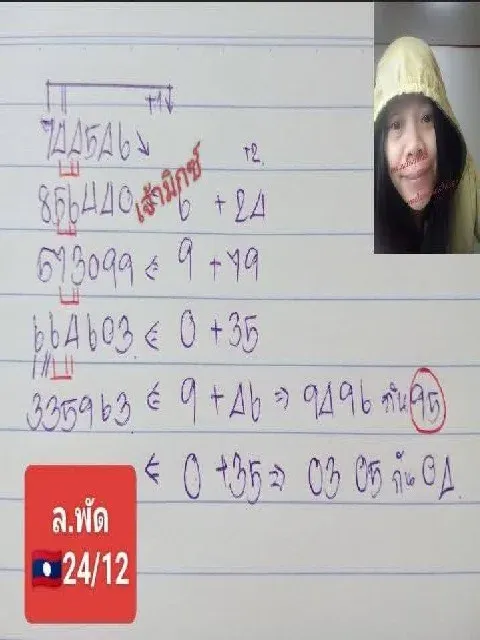 +1
744546
856440 เจ้ามิกซ์ 6 +24
+2
673099 ← 9 +79
664603 ← 0 +35
335963 ← 9 +46 ⇒ 9496 กัน 95
← 0 +35 ⇒ 03 05 กัน 04
ล.พัด
24/12